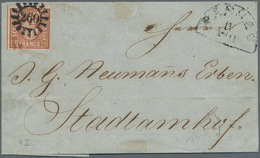 260
FRANCO
Herrn
J. G. Neumanns Erben.
Stadtamhof